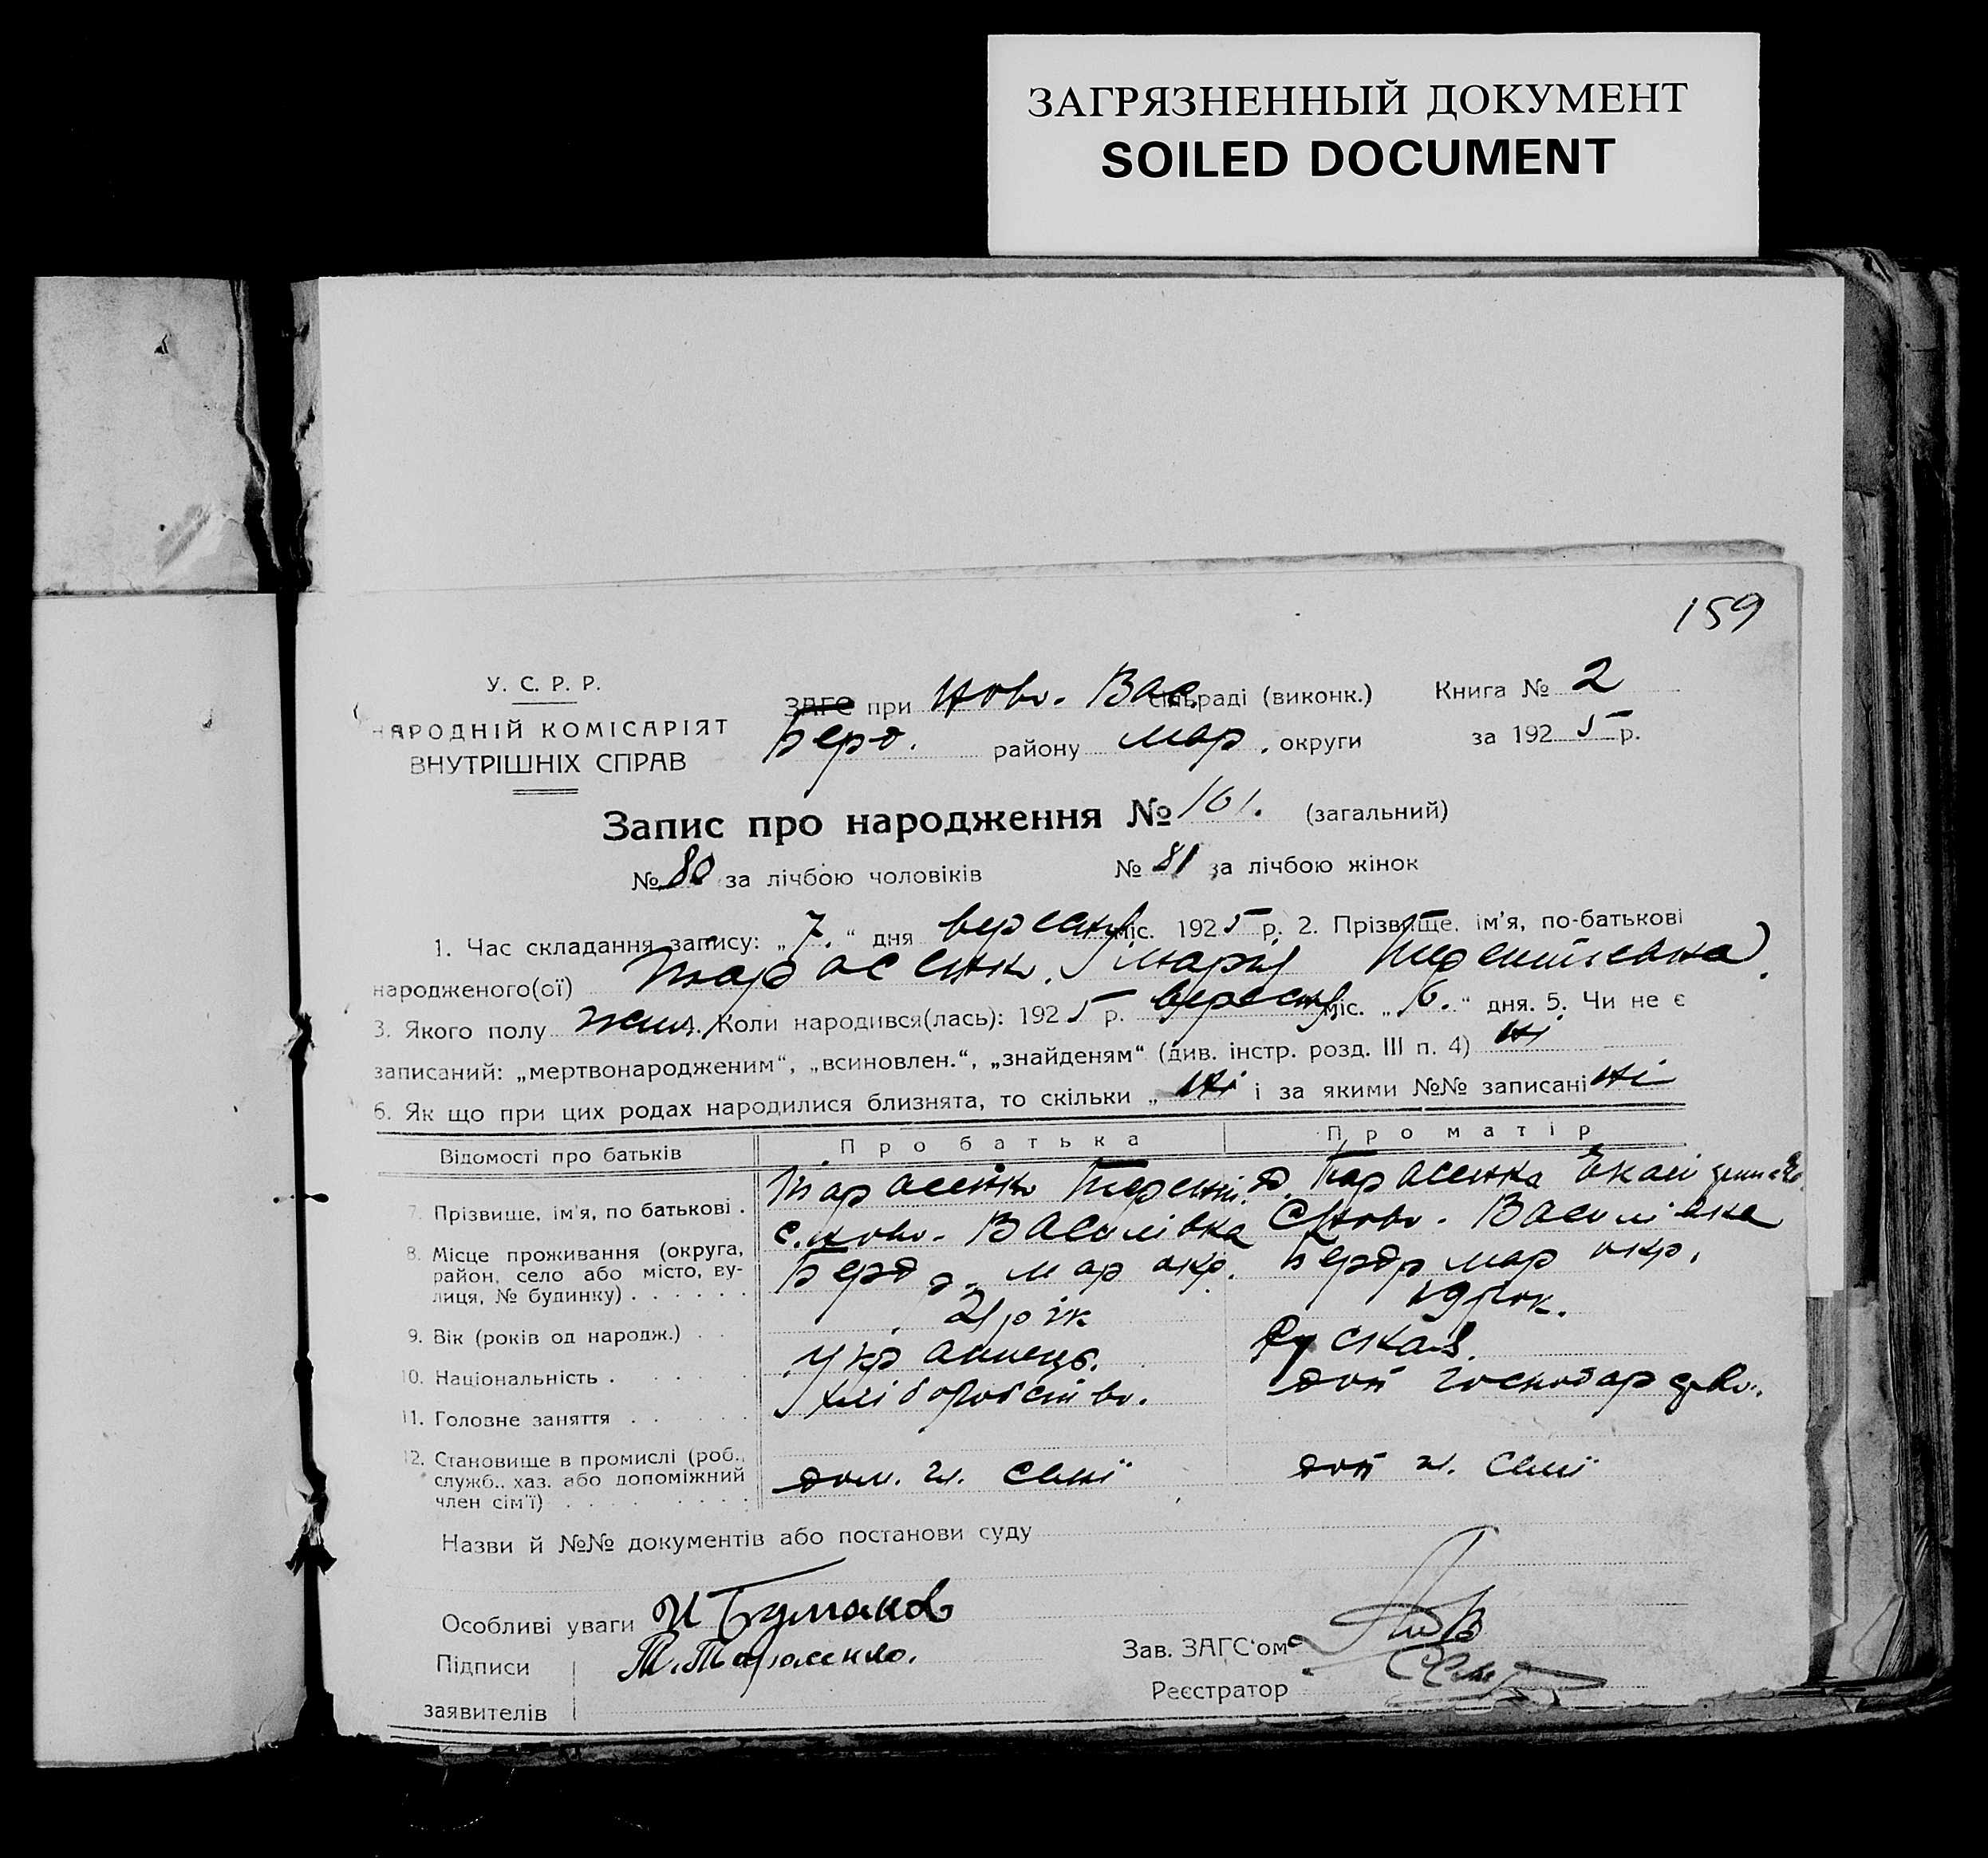 ЗАГРЯЗНЕННЫЙ ДОКУМЕНТ
SOILED DOCUMENT
159
У. С. Р. Р.
НАРОДНІЙ КОМІСАРІЯТ
ВНУТРІШНІХ СПРАВ
ЗАГС при Ново. Вас. сільраді (виконк.)
Берд. району Мар. округи
Книга № 2
за 1925 р.
Запис про народження № 161. (загальний)
№ 80 за лічбою чоловіків № 81 за лічбою жінок
1. Час складання запису: „7.“ дня вересня міс. 1925 р. 2. Прізвище, ім'я, по-батькові
народженого(ої) Тарасенко Марія Терентіевна
3. Якого полу жин. Коли народився(лась): 1925 р. вересня міс. „6.“ дня. 5. Чи не є
записаний: „мертвонародженим“, „всиновлен.“, „знайденям“ (див. інстр. розд. III п. 4) ні
6. Як що при цих родах народилися близнята, то скільки „ ні і за якими №№ записані ні
Відомості про батьків Про батька Про матір
7. Прізвище, ім'я, по батькові . Тарасенко Терент. Тарасенка Екат
8. Місце проживання (округа, район, село або місто, вулиця, № будинку) . . . . . . с. Ново-Василівка Берд р. мар окр. С Ново-Василівка Берд р мар окр.
9. Вік (років од народж.) . . 21 рік 19 рок.
10. Національність . . . . . Українець. Руская.
11. Головне заняття . . . . . хліборобство. дом господарство.
12. Становище в промислі (роб., служб., хаз. або допоміжний член сім'ї) . . . . . . . дом. ч. сем'ї доп ч. сем'ї
Назви й №№ документів або постанови суду
Особливі уваги
Підписи Т. Тарасенко.
заявителів
Зав. ЗАГС'ом
Реєстратор